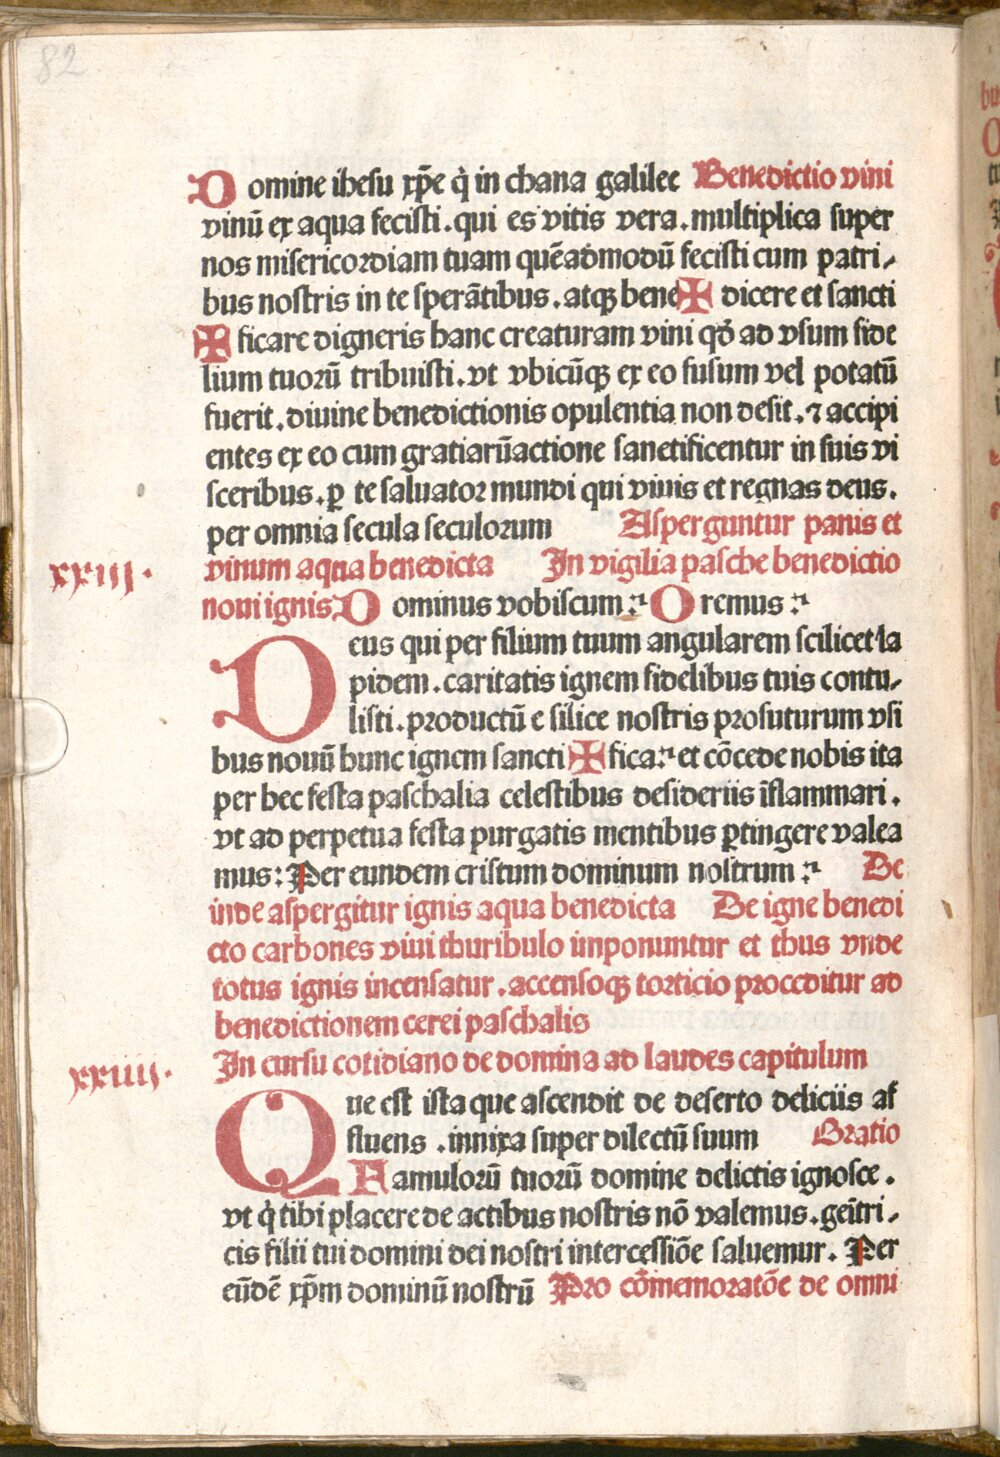 82
Domine ihesu xp̄e q̇ in chana galilee Benedictio vini
vinū ex aqua fecisti. qui es vitis vera. multiplica super
nos misericordiam tuam quēadmodū fecisti cum patri⸗
bus nostris in te sperātibus. atqꝫ bene ✠ dicere et sancti
✠ ficare digneris hanc creaturam vini qđ ad vsum fide
lium tuorū tribuisti. vt vbicūqꝫ ex eo fusum vel potatū
fuerit. diuine benedictionis opulentia non desit. ⁊ accipi
entes ex eo cum gratiarūactione sanctificentur in suis vi
sceribus. ꝑ te saluator mundi qui viuis et regnas deus.
per omnia secula seculorum Asperguntur panis et
xxiij. vinum aqua benedicta In vigilia pasche benedictio
noui ignis Dominus vobiscum :⁊ Oremus :⁊
Deus qui per filium tuum angularem scilicet la
pidem. caritatis ignem fidelibus tuis contu⸗
listi. productū e silice nostris profuturum vsi
bus nouū hunc ignem sancti ✠ fica:⁊ et cōcede nobis ita
per hec festa paschalia celestibus desideriis īflammari.
vt ad perpetua festa purgatis mentibus ꝑtingere valea
mus: Per eundem cristum dominum nostrum :⁊ De
inde aspergitur ignis aqua benedicta De igne benedi
cto carbones viui thuribulo imponuntur et thus vnde
totus ignis incensatur. accensoqꝫ torticio proceditur ad
benedictionem cerei paschalis
xxiiij. In cursu cotidiano de domina ad laudes capitulum
Que est ista que ascendit de deserto deliciis af
fluens. innixa super dilectū suum Oratio
Famulorū tuorū domine delictis ignosce.
vt q̇ tibi placere de actibus nostris nō valemus. geītri⸗
cis filii tui domini dei nostri intercessiōe saluemur. Per
eūdē xp̄m dominū nostrū Pro cōmemoratōe de omni